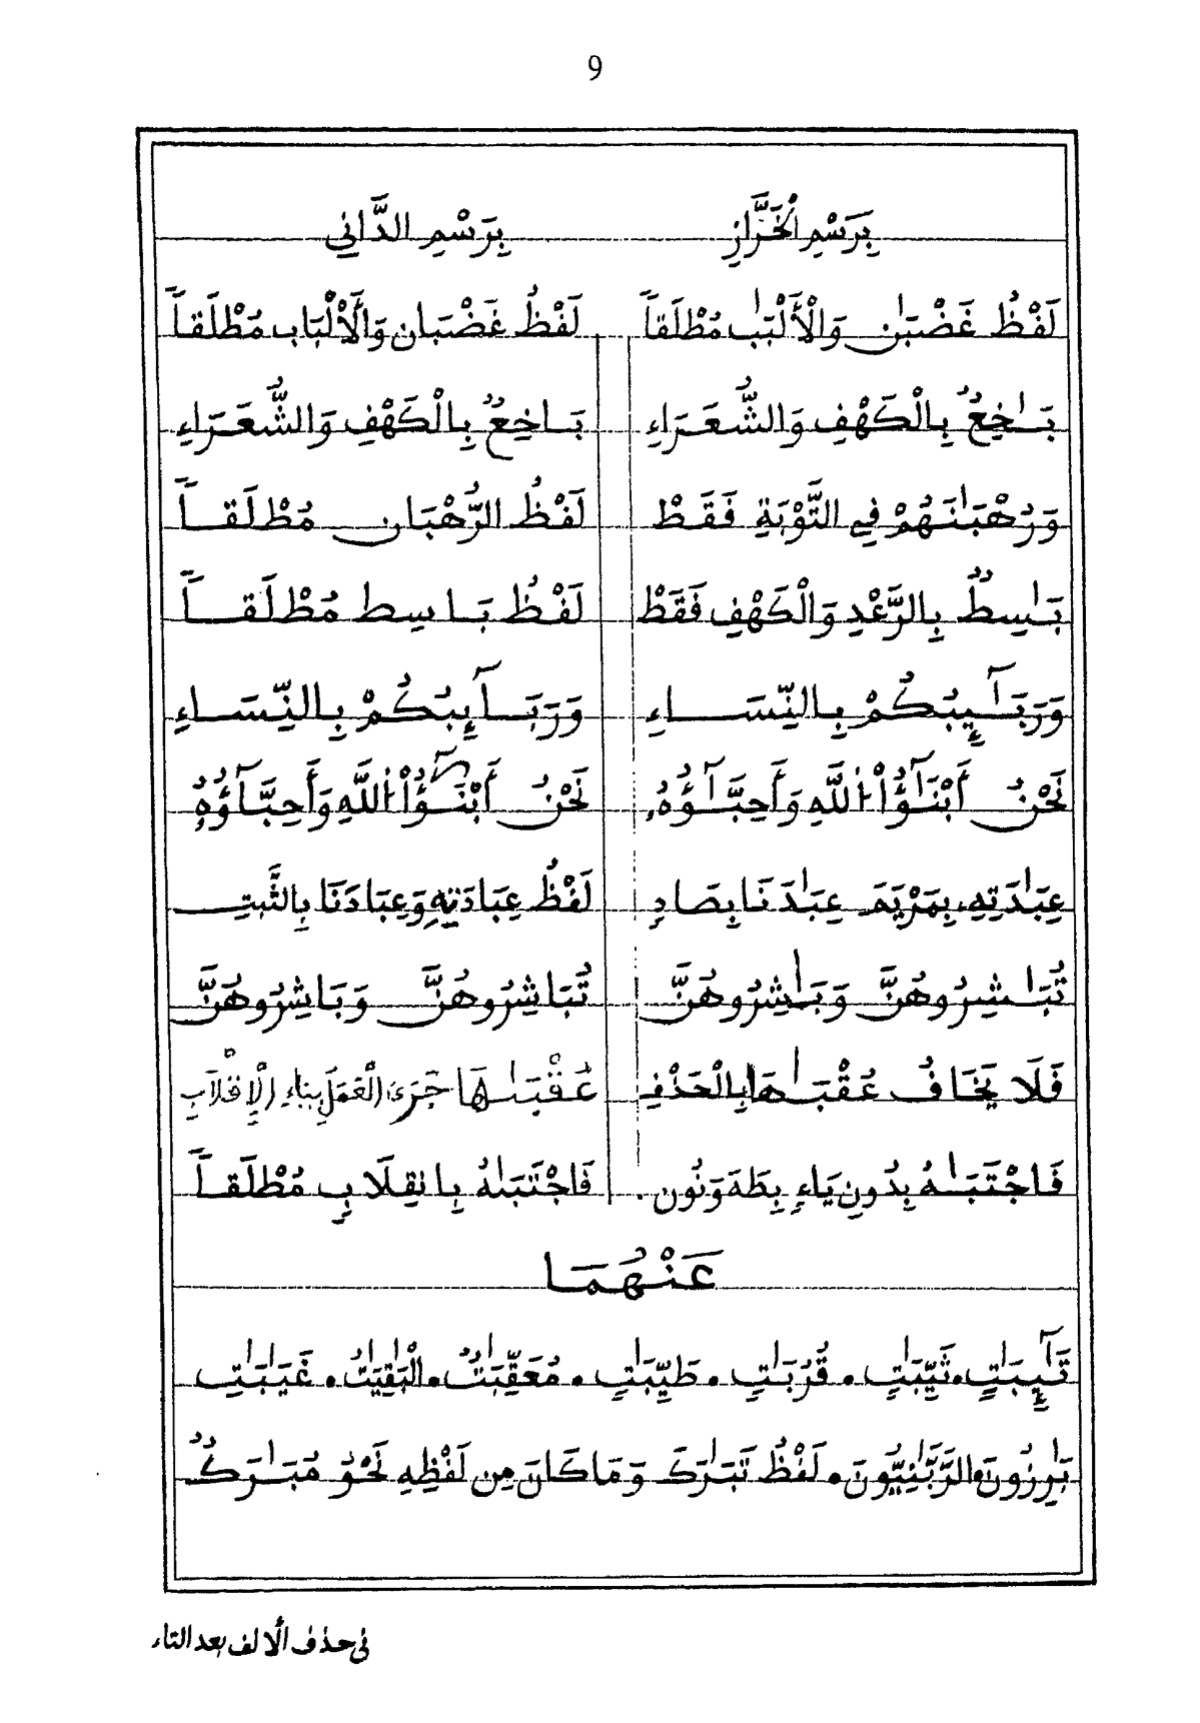 9
بِرَسْمِ الْخَرَّازِ بِرَسْمِ الدَّانِي
لَفْظُ غَضْبَٰن وَالْأَلْبَٰب مُطْلَقاً لَفْظُ غَضْبَان وَالْأَلْبَاب مُطْلَقاً
بَٰخِعٌ بِالْكَهْفِ وَالشُّعَرَاءِ بَاخِعٌ بِالْكَهْفِ وَالشُّعَرَاءِ
وَرُهْبَٰنَهُمْ فِي التَّوْبَةِ فَقَطْ لَفْظُ الرُّهْبَان مُطْلَقاً
بَٰسِطٌ بِالرَّعْدِ وَالْكَهْفِ فَقَطْ لَفْظُ بَاسِط مُطْلَقاً
وَرَبَٰٓئِبُكُمْ بِالنِّسَاءِ وَرَبَآئِبُكُمْ بِالنِّسَاءِ
نَحْنُ أَبْنَٰٓؤُاْ اللَّهِ وَأَحِبَّٰٓؤُهُ نَحْنُ أَبْنَٰٓؤُاْ اللَّهِ وَأَحِبَّآؤُهُ
عِبَٰدَتِهِ بِمَرْيَمَ عِبَٰدَنَا بِصَادِ لَفْظُ عِبَادَتِهِ وَعِبَادَنَا بِالثَّبتِ
تُبَٰشِرُوهُنَّ وَبَٰشِرُوهُنَّ تُبَاشِرُوهُنَّ وَبَاشِرُوهُنَّ
فَلَا يَخَافُ عُقْبَٰهَا بِالْحَذْفِ عُقْبَىٰهَا جَرَى الْعَمَلُ بِيَاءِ الْإِقْلَابِ
فَاجْتَبَٰهُ بِدُونِ يَاءٍ بِطَهَ وَنُون . فَاجْتَبَىٰهُ بِانقِلَابٍ مُطْلَقاً
عَنْهُمَا
تَٰٓئِبَٰتٍ . ثَيِّبَٰتٍ . قُرُبَٰتٍ . طَيِّبَٰتٍ . مُعَقِّبَٰتٌ . الْبَٰقِيَٰتُ . غَيَٰبَٰتِ
بَٰرِزُونَ . الرَّبَّٰنِيُّونَ . لَفْظُ تَبَٰرَكَ وَمَا كَانَ مِن لَفْظِهِ نَحْوُ مُبَٰرَكٌ
في حذف الألف بعد التاء